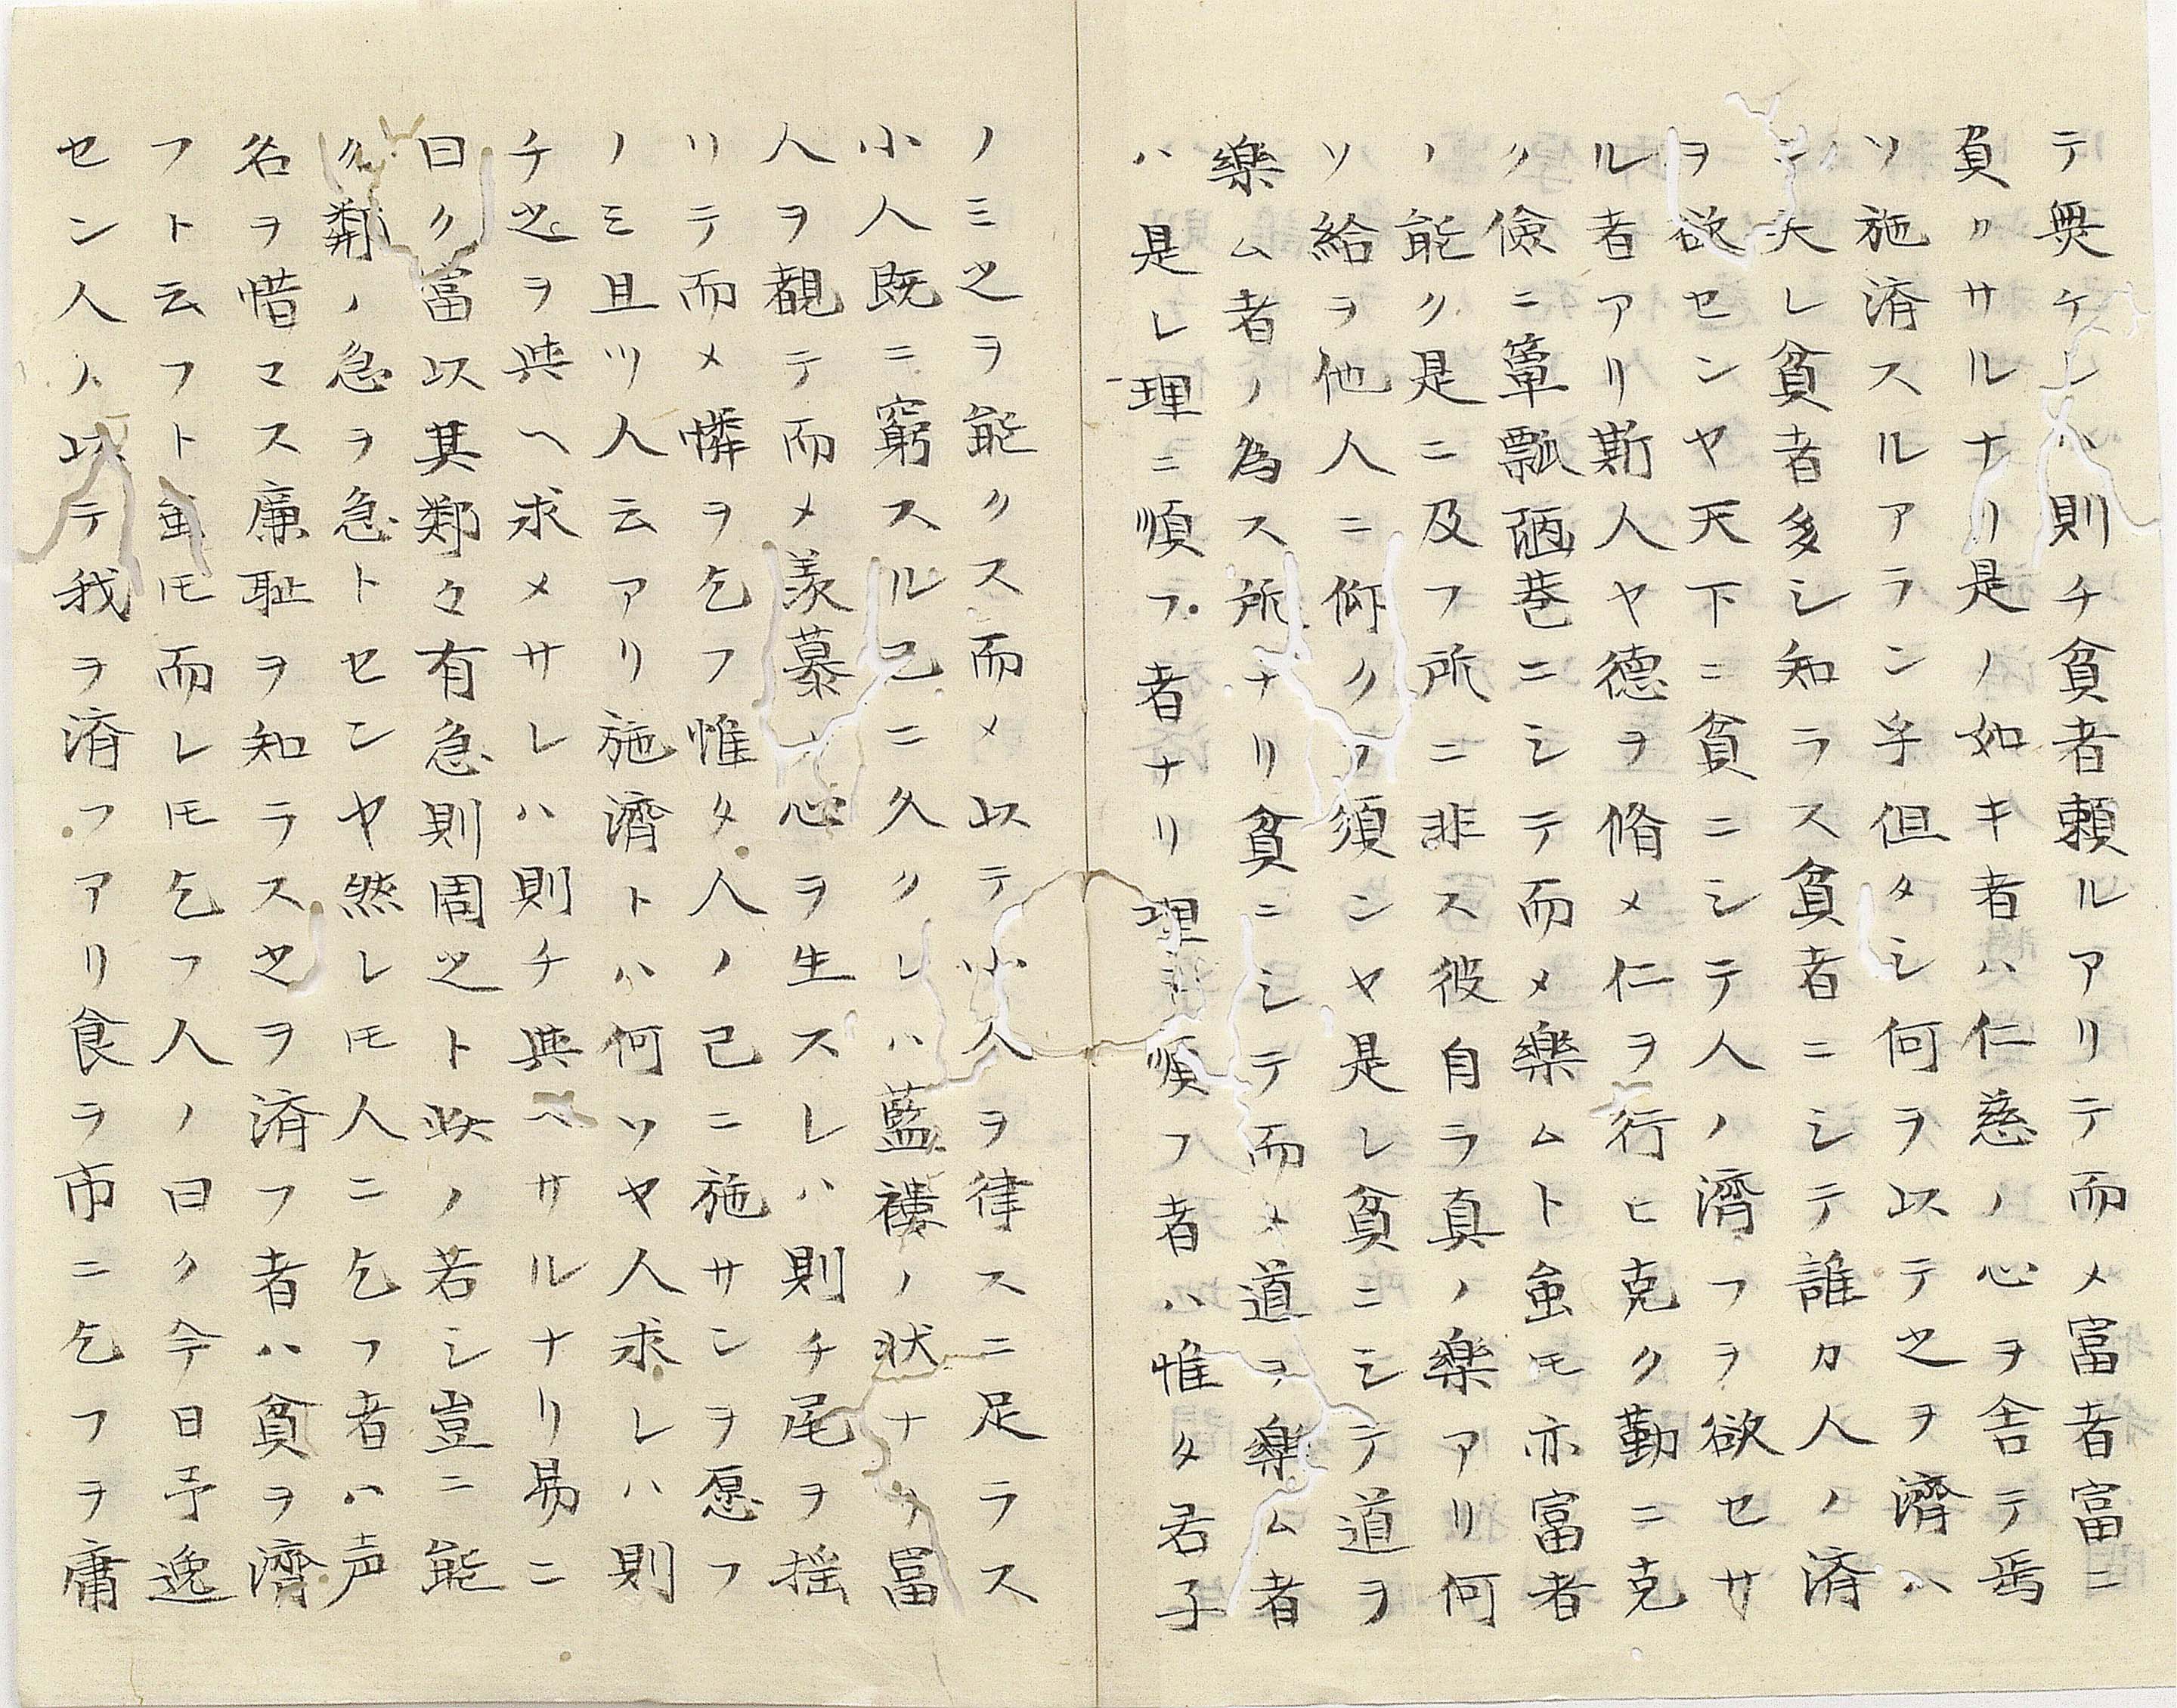 テ無ケレハ則チ貧者頼ルアリテ而メ富者富ニ
負クサルナリ是ノ如キ者ハ仁慈ノ心ヲ舎テ焉
ソ施済スルアラン乎但タシ何ヲ以テ之ヲ濟ハ
ン夫レ貧者多シ知ラス貧者ニシテ誰カ人ノ済
ヲ欲センヤ天下ニ貧ニシテ人ノ濟フヲ欲セサ
ル者アリ斯人ヤ德ヲ脩メ仁ヲ行ヒ克ク勤ニ克
ク儉ニ簞瓢陋巷ニシテ而メ樂ムト虽モ亦富者
ノ能ク是ニ及フ所ニ非ス彼自ラ真ノ樂アリ何
ソ給ヲ他人ニ仰クヲ須ンヤ是レ貧ニシテ道ヲ
樂ム者ノ為ス所ナリ貧ニシテ而メ道ヲ樂ム者
ハ是レ理ニ順フ者ナリ理ニ順フ者ハ惟タ君子
ノミ之ヲ能クス而メ以テ小人ヲ律スニ足ラス
小人既ニ窮スル已ニ久クレハ藍褸ノ状ナリ富
人ヲ觀テ而メ羨慕ノ心ヲ生スレハ則チ尾ヲ揺
リテ而メ憐ヲ乞フ惟タ人ノ己ニ施サンヲ愿フ
ノミ且ツ人云アリ施濟トハ何ソヤ人求レハ則
チ之ヲ與ヘ求メサレハ則チ與ヘサルナリ易ニ
曰ク富以其鄰々有急則周之ト此ノ若シ豈ニ能
ク鄰ノ急ヲ急トセンヤ然レモ人ニ乞フ者ハ声
名ヲ惜マス廉耻ヲ知ラス之ヲ済フ者ハ貧ヲ濟
フト云フト虽モ而レモ乞フ人ノ曰ク今日予逸
セン人ノ以テ我ヲ済フアリ食ヲ市ニ乞フヲ庸